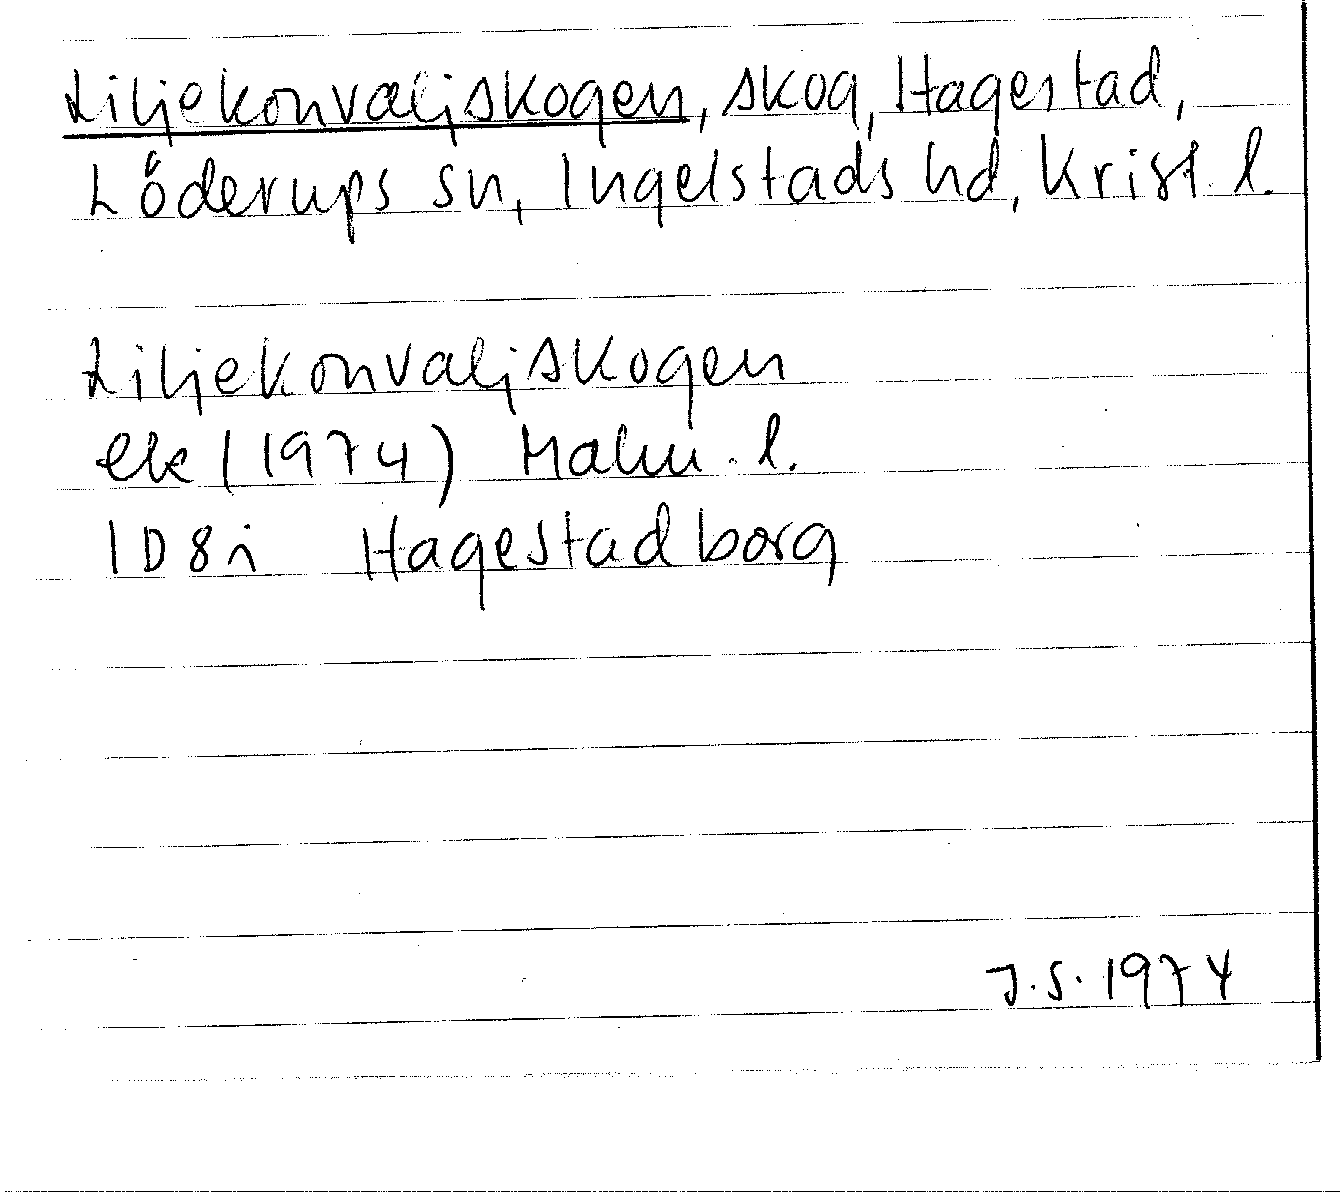 Liljekonvaljskogen, skog, Hagestad,
Löderups sn, Ingelstads hd, Krist. l.
Liljekonvaljskogen
ek (1974) Malm. l.
1D8i Hagestadborg
J.S. 1974